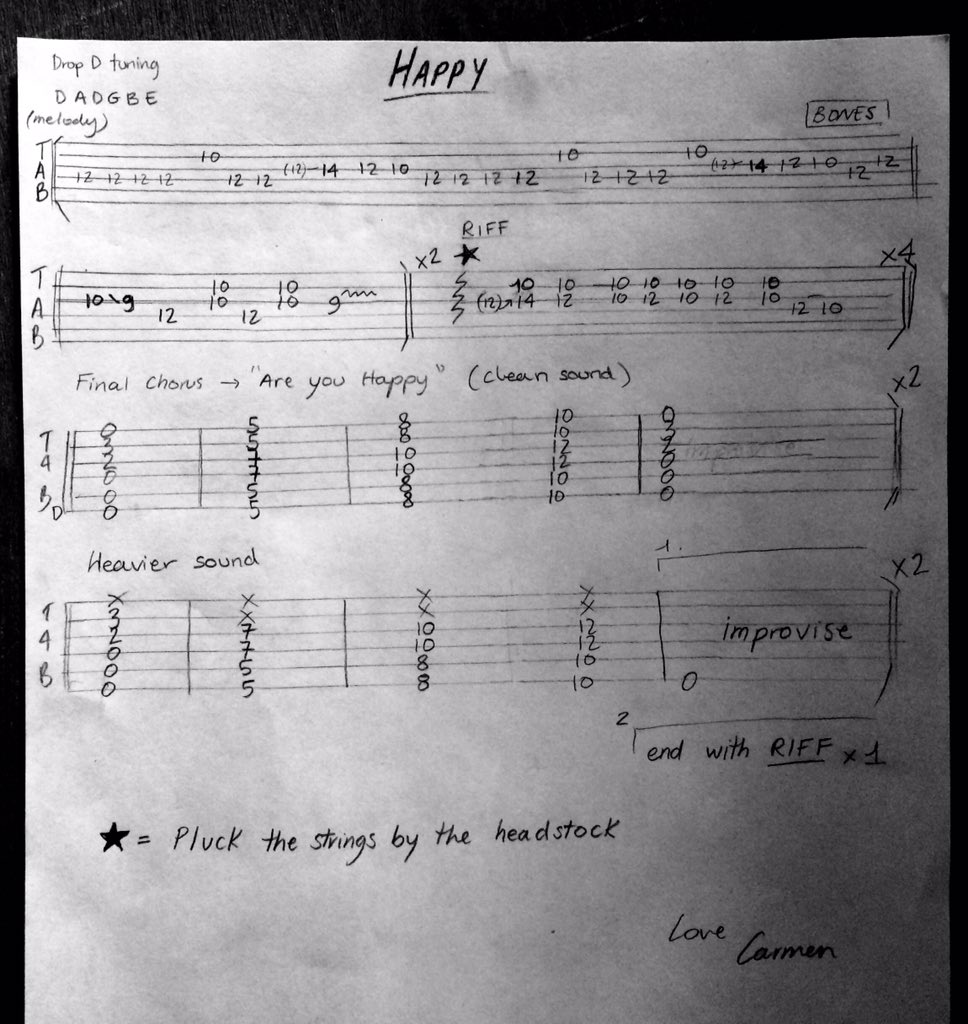 Drop D tuning
HAPPY
DADGBE
(melody)
BONES
T
A
B
10 10 10
12 12 12 12 12 12 (12) 14 12 10 12 12 12 12 12 12 12 (12) 14 12 10 12 12
RIFF
x2 ★ x4
T
A
B
10 10 10 10 10 10 10 10 10
10\9 10 10 9 (12) 14 12 10 12 10 12 10
12 12 12 10
Final Chorus → "Are you Happy" (clean sound)
x2
T
A
B
D
0 5 8 10 0
3 5 8 10 3
2 7 10 12 2
0 7 10 12 0
0 5 8 10 0
0 5 8 10 0
improvise
Heavier sound
1.
x2
T
A
B
x x x x
3 x x x
2 7 10 12 improvise
0 7 10 12
0 5 8 10
0 5 8 10 0
2
end with RIFF x 1
★ = Pluck the strings by the headstock
Love
Carmen